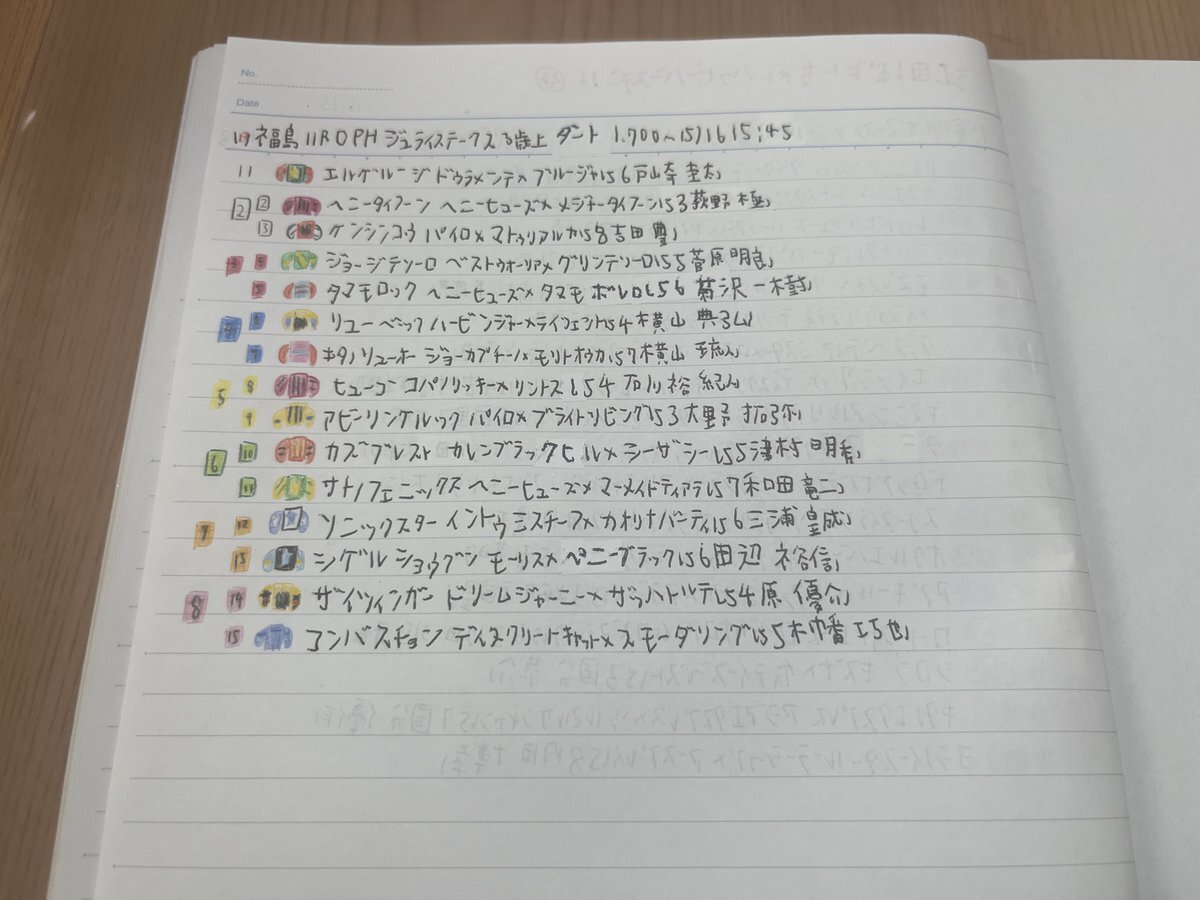 No.
Date
福島 11R OPH ジュライステークス 3歳上 ダント 1.700m 15/16 15:45
1 1 エルゲルージ ドゥラメンテ×ブルージャ 56 戸崎 圭太
2 2 ヘニータイフーン ヘニーヒューズ× 53 荻野 極
3 ケンシンコウ パイロ×マトゥリアル 58 吉田 豊
3 4 ジョージテソーロ ベストウォーリア×グリンテソーロ 55 菅原 明良
5 タマモロック ヘニーヒューズ×タマモボレロ 56 菊沢 一樹
4 6 リューベック ハービンジャー× 54 横山 典弘
7 キタノリューオー ジョーカプチーノ×モリトオウカ 57 横山 琉人
5 8 ヒューゴ コパノリッキー×リントス 54 石川 裕紀人
9 アピーリングルック パイロ×ブライトリビング 53 大野 拓弥
6 10 カズプレスト カレンブラックヒル×シーザシー 55 津村 明秀
11 サトノフェニックス ヘニーヒューズ×マーメイドティアラ 57 和田 竜二
7 12 ソニックスター イントゥミスチーフ×カオリナパーティ 56 三浦 皇成
13 シゲルショウグン モーリス×ペニーブラック 56 田辺 裕信
8 14 ザイツィンガー ドリームジャーニー×ザッハトルテ 54 原 優介
15 コンバスチョン ディスクリートキャット×スモーダリング 55 木幡 巧也